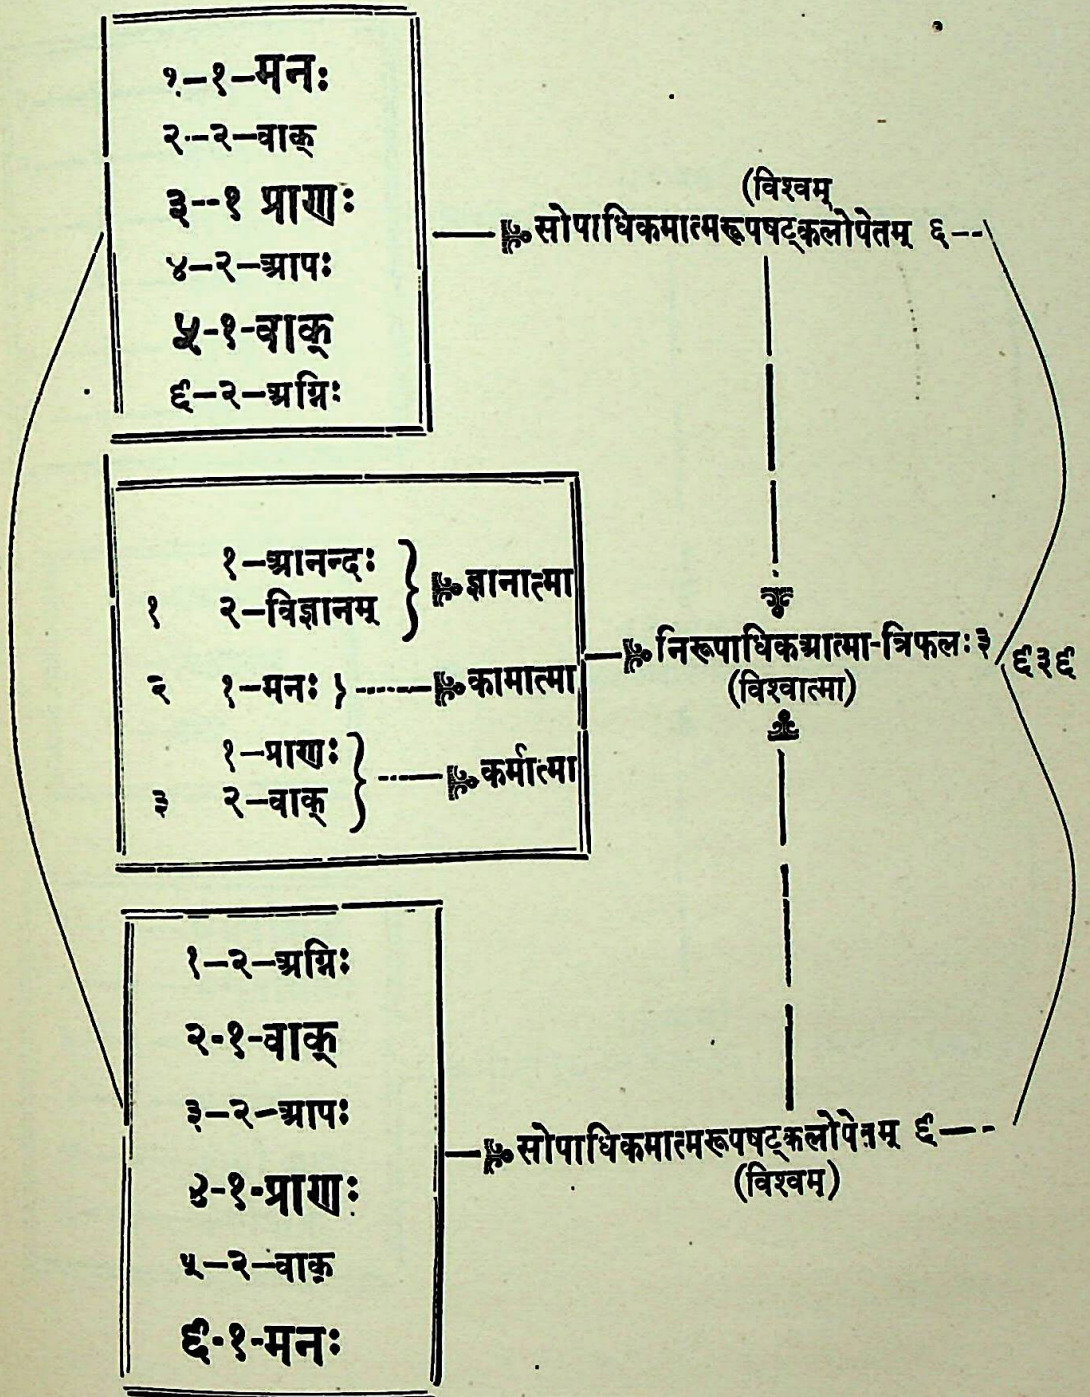 १-१-मनः
२-२-वाक्
३--१ प्राणः
४-२-आपः
५-१-वाक्
६-२-अग्निः
(विश्वम्
सोपाधिकमात्मरूपषट्कलोपेतम् ६--
१-आनन्दः
१ २-विज्ञानम्
ज्ञानात्मा
२ १-मनः } ------ कामात्मा
१-प्राणः
३ २-वाक्
कर्मात्मा
निरूपाधिकआत्मा-त्रिफलः३
(विश्वात्मा)
६३६
१-२-अग्निः
२-१-वाक्
३-२-आपः
४-१-प्राणः
५-२-वाक्
६-१-मनः
सोपाधिकमात्मरूपषट्कलोपेतम् ६--
(विश्वम्)